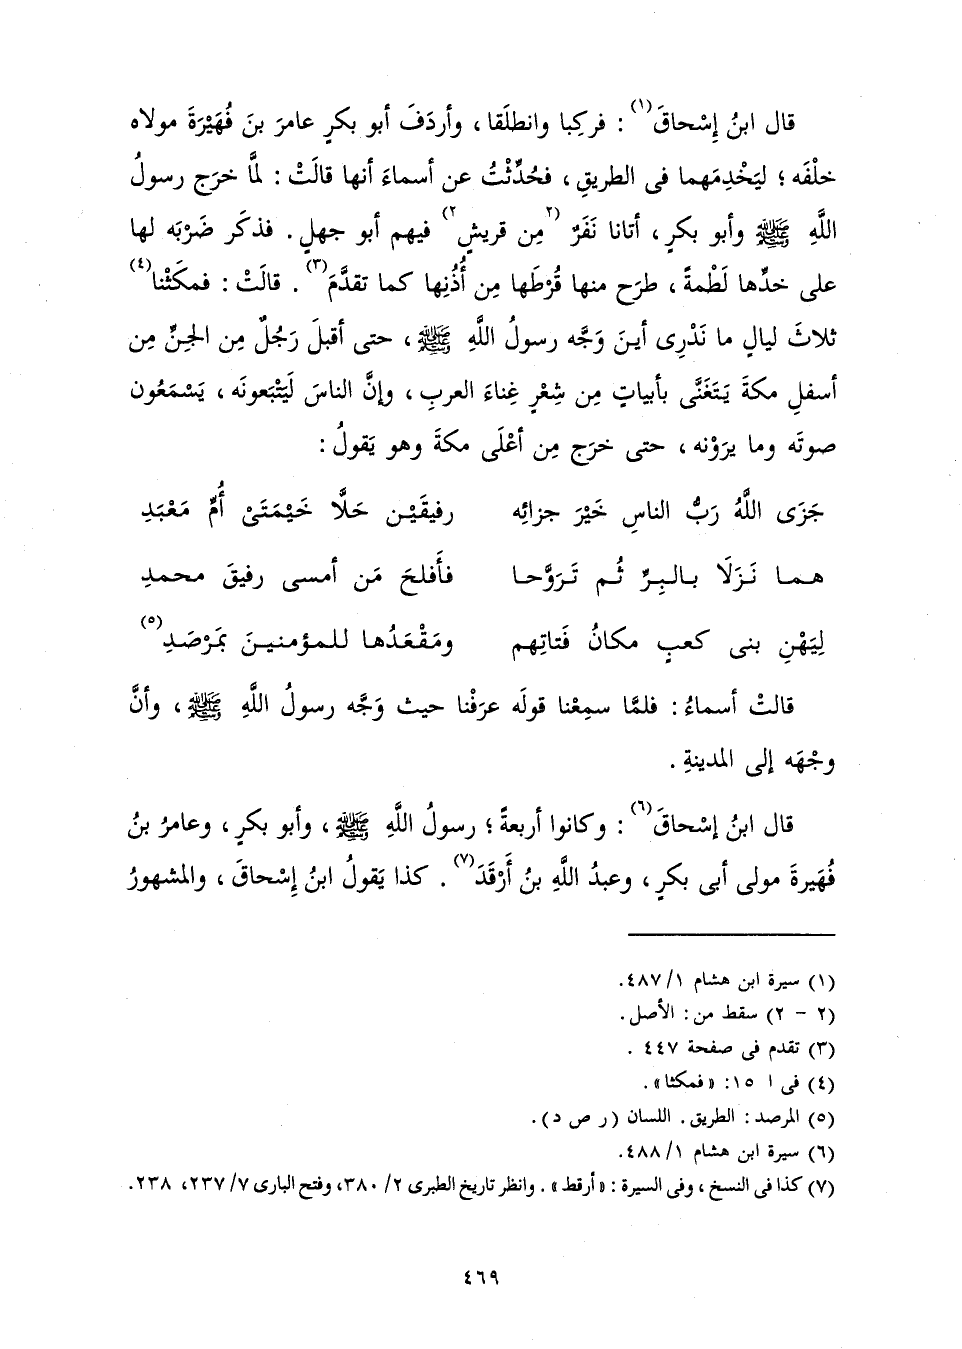 قال ابنُ إِسْحاقَ(١) : فركِبا وانطلَقا ، وأردَفَ أبو بكرٍ عامرَ بنَ فُهَيْرَةَ مولاه
خلْفَه ؛ ليَخْدِمَهما فى الطريقِ ، فحُدِّثْتُ عن أسماءَ أنها قالَتْ : لمَّا خرَج رسولُ
اللَّهِ ﷺ وأبو بكرٍ ، أتانا نَفَرٌ (٢مِن قريشٍ٢) فيهم أبو جهلٍ . فذكَر ضَرْبَه لها
على خدِّها لَطْمةً ، طرَح منها قُرْطَها مِن أُذُنِها كما تقدَّمَ(٣) . قالَتْ : فمكَثْنا(٤)
ثلاثَ ليالٍ ما نَدْرِى أينَ وَجَّه رسولُ اللَّهِ ﷺ ، حتى أقبلَ رَجُلٌ مِن الجنِّ مِن
أسفلِ مكةَ يَتَغَنَّى بأبياتٍ مِن شِعْرِ غِناءَ العربِ ، وإنَّ الناسَ لَيَتْبَعونَه ، يَسْمَعُون
صوتَه وما يرَوْنه ، حتى خرَج مِن أعْلَى مكةَ وهو يَقولُ :
جَزَى اللَّهُ رَبُّ الناسِ خَيْرَ جزائِه رفيقَيْن حَلَّا خَيْمَتَىْ أُمِّ مَعْبَدِ
هما نَزَلَا بالبِرِّ ثُم تَرَوَّحا فأَفلحَ مَن أمسى رفيقَ محمدِ
لِيَهْنِ بنى كعبٍ مكانُ فَتاتِهم ومَقْعَدُها للمؤمنينَ بَمَرْصَدِ(٥)
قالتْ أسماءُ : فلمَّا سمِعْنا قولَه عرَفْنا حيث وَجَّه رسولُ اللَّهِ ﷺ ، وأنَّ
وجْهَه إلى المدينةِ .
قال ابنُ إسْحاقَ(٦) : وكانوا أربعةً ؛ رسولُ اللَّهِ ﷺ ، وأبو بكرٍ ، وعامرُ بنُ
فُهَيرةَ مولى أبى بكرٍ ، وعبدُ اللَّهِ بنُ أَرْقَدَ(٧) . كذا يَقولُ ابنُ إِسْحاقَ ، والمشهورُ
(١) سيرة ابن هشام ١/ ٤٨٧.
(٢ - ٢) سقط من : الأصل .
(٣) تقدم فى صفحة ٤٤٧ .
(٤) فى ا ١٥: « فمكثا » .
(٥) المرصد : الطريق . اللسان ( ر ص د ) .
(٦) سيرة ابن هشام ١/ ٤٨٨.
(٧) كذا فى النسخ ، وفى السيرة : « أرقط » . وانظر تاريخ الطبرى ٢/ ٣٨٠، وفتح البارى ٧/ ٢٣٧، ٢٣٨.
٤٦٩